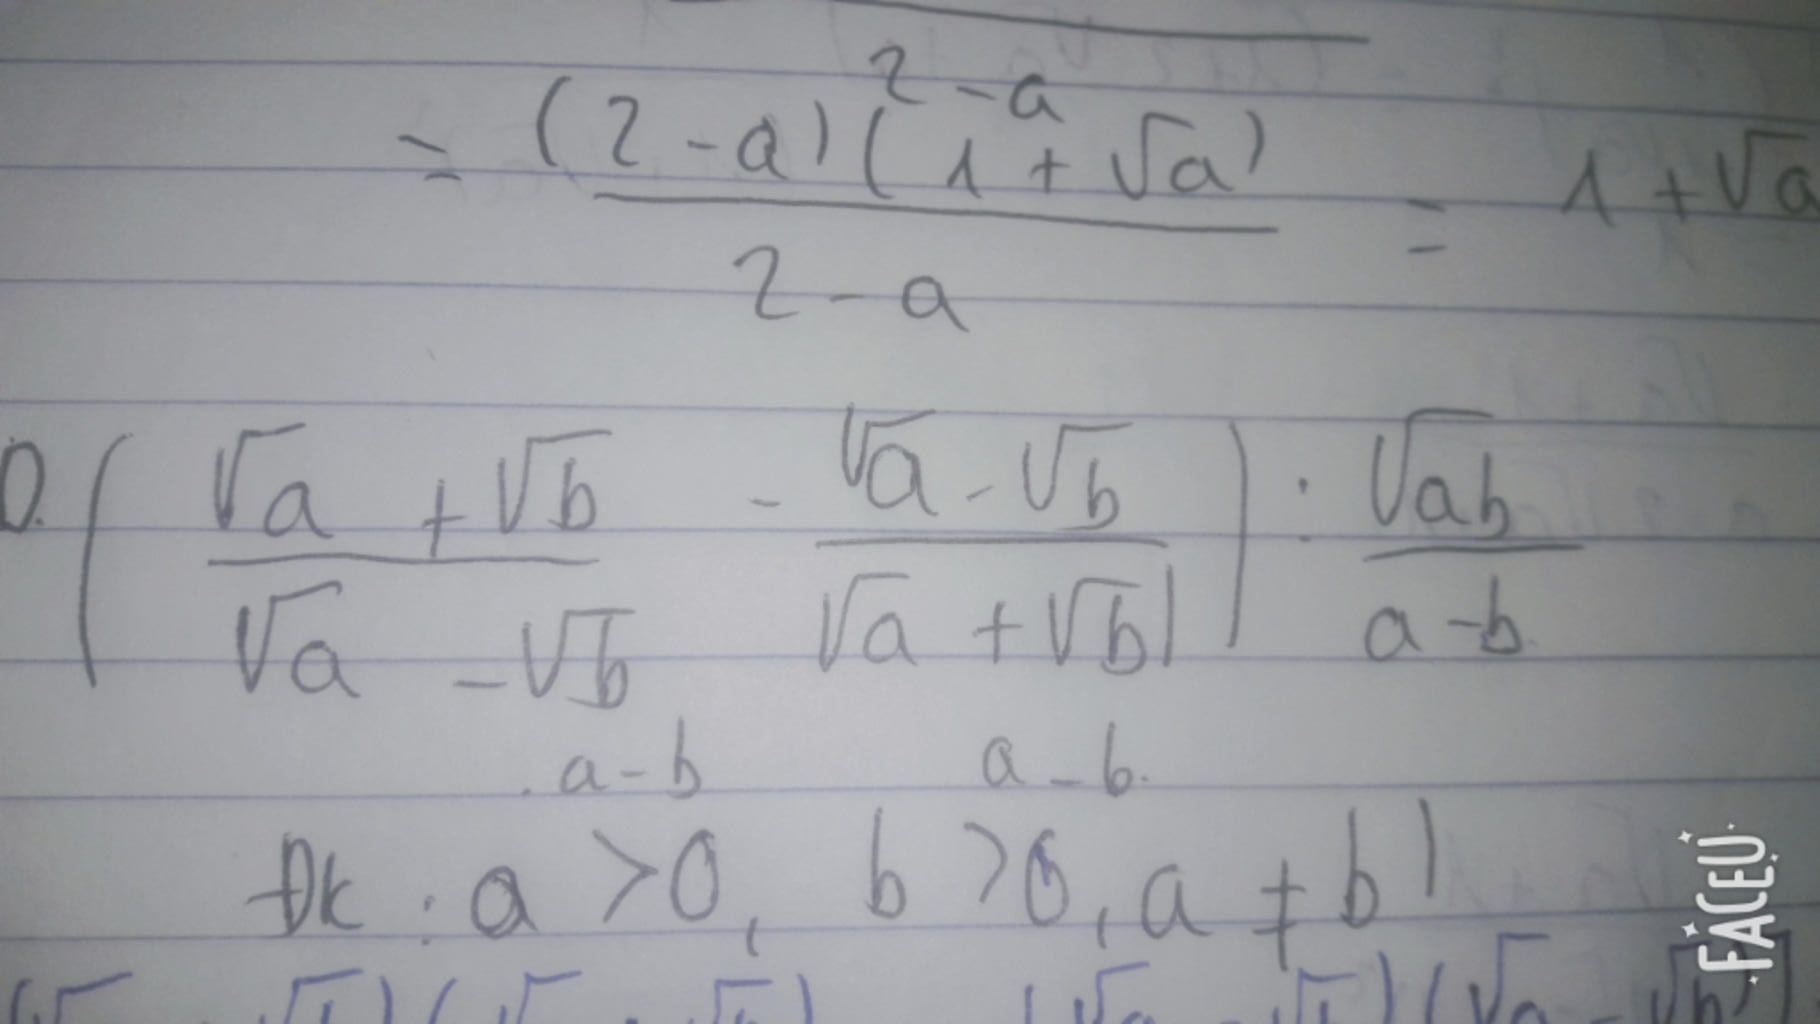 2 - a
= (2 - a)(1 + √a) / 2 - a = 1 + √a
D. ( √a + √b / √a - √b - √a - √b / √a + √b ) : √ab / a - b
a - b a - b
Đk : a > 0, b > 0, a ≠ b
(√a - √b)(√a - √b)
FACEU